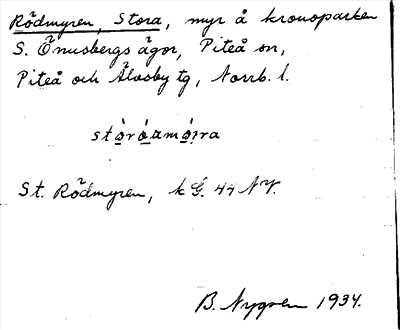 Rödmyren, Stora, myr å kronoparken
S. Önusbergs ägor, Piteå sn,
Piteå och Älvsby tg, Norrb. l.
St. Rödmyren, k G. 44 NV.
B. Nygren 1934.